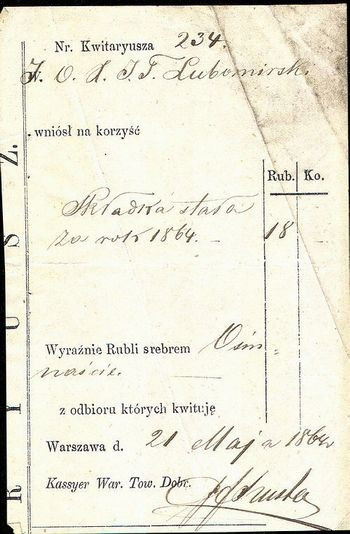 Nr. Kwitaryusza 234.
J. O. X. J. T. Lubomirski
wniósł na korzyść
Rub. Ko.
Składka stała
za rok 1864. 18
Wyraźnie Rubli srebrem Ośm=
naście.
z odbioru których kwituję
Warszawa d. 21 Maja 1864
Kassyer War. Tow. Dobr.
R Y U S Z.